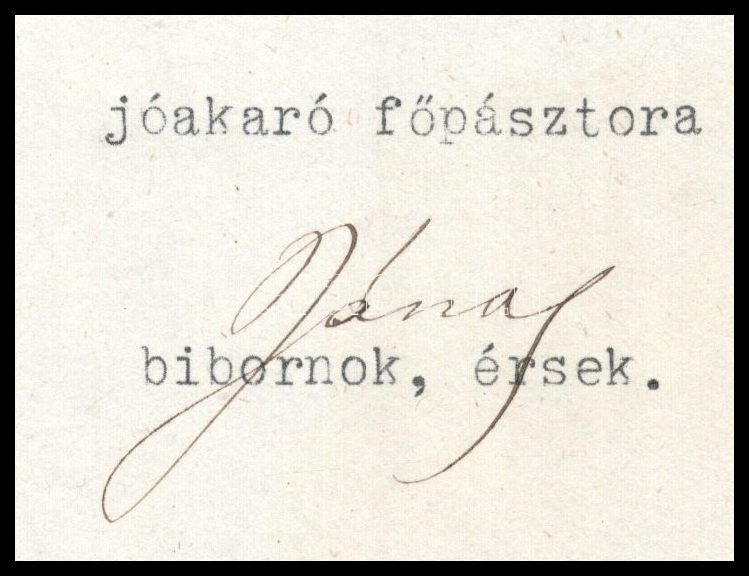 jóakaró főpásztora
János
bibornok, érsek.